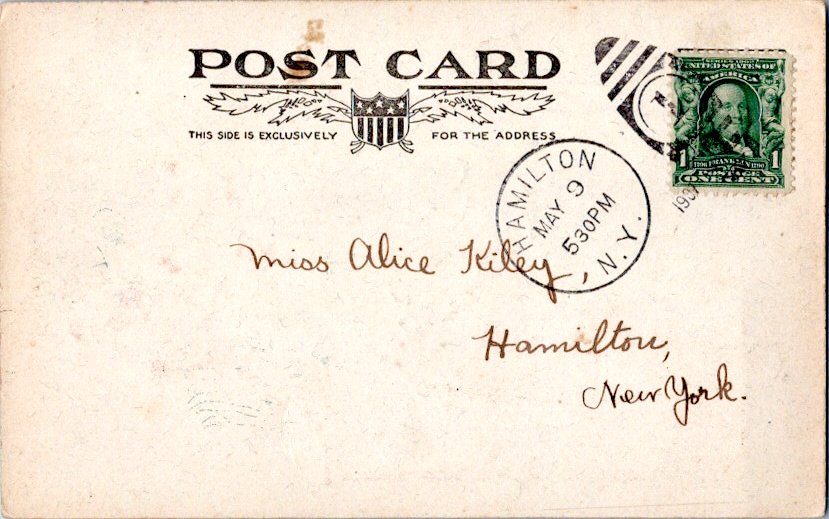 POST CARD
THIS SIDE IS EXCLUSIVELY FOR THE ADDRESS
SERIES 1902
UNITED STATES OF
AMERICA
1 1706 FRANKLIN 1790 1
POSTAGE
ONE CENT
HAMILTON
MAY 9
530PM
N.Y.
Miss Alice Kiley,
Hamilton,
New York.